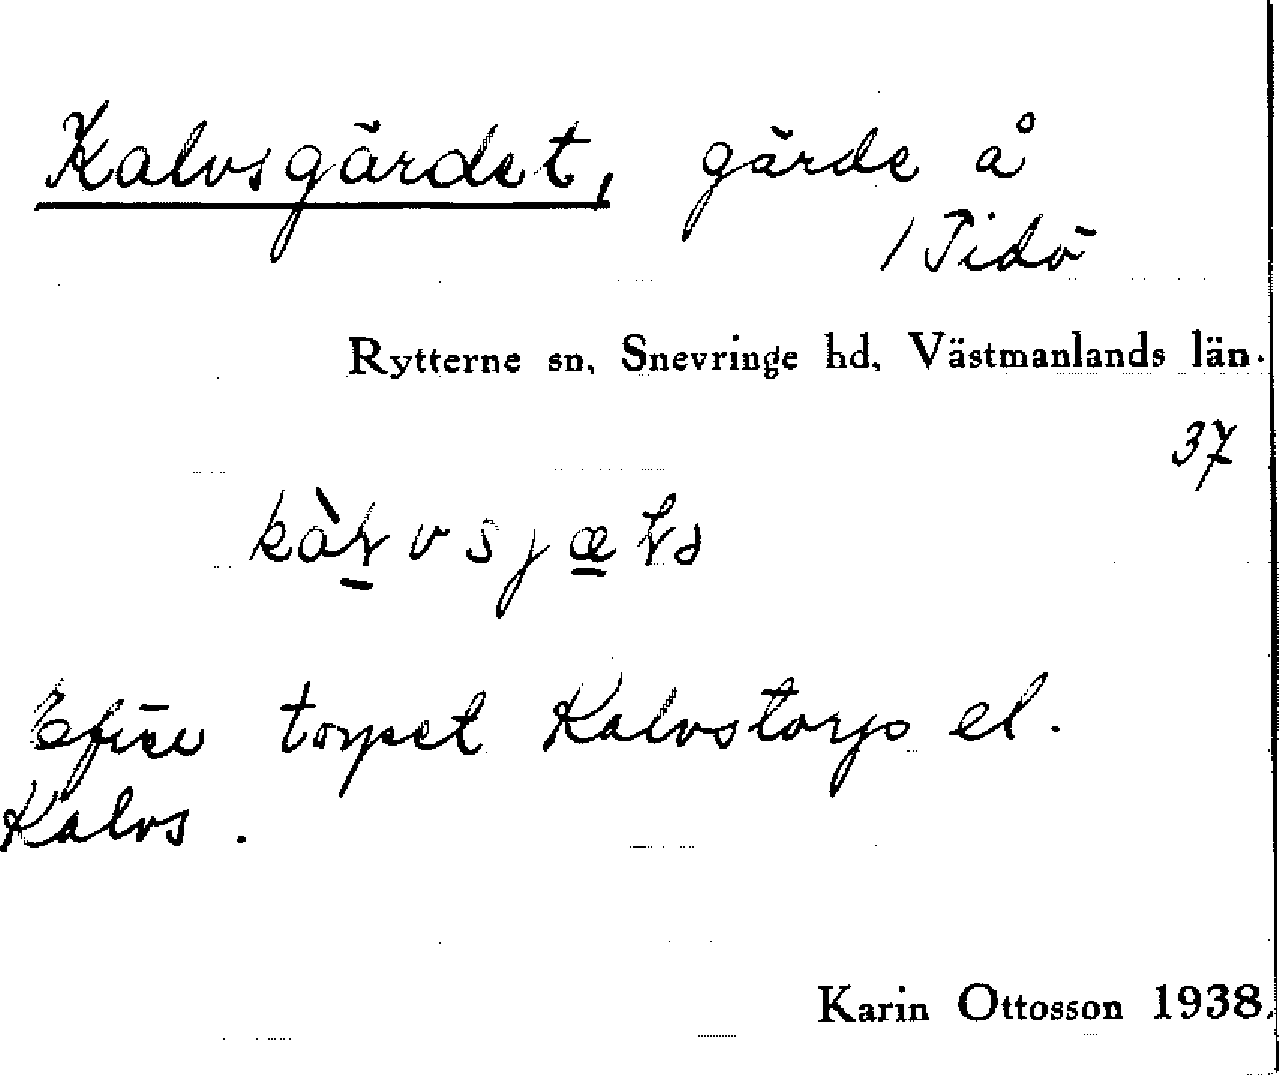 Kalvsgärdet, gärde å
1 Tidö
Rytterne sn, Snevringe hd, Västmanlands län.
37
Efter torpet Kalvstorp el.
Kalvs.
Karin Ottosson 1938.